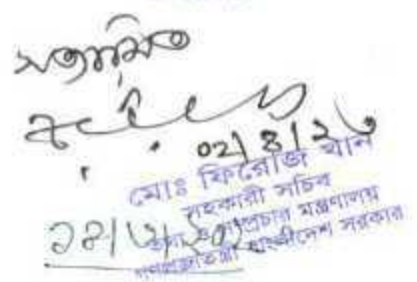 সত্যায়িত
০২/৪/২৩
মোঃ ফিরোজ খান
সহকারী সচিব
তথ্য ও সম্প্রচার মন্ত্রণালয়
গণপ্রজাতন্ত্রী বাংলাদেশ সরকার